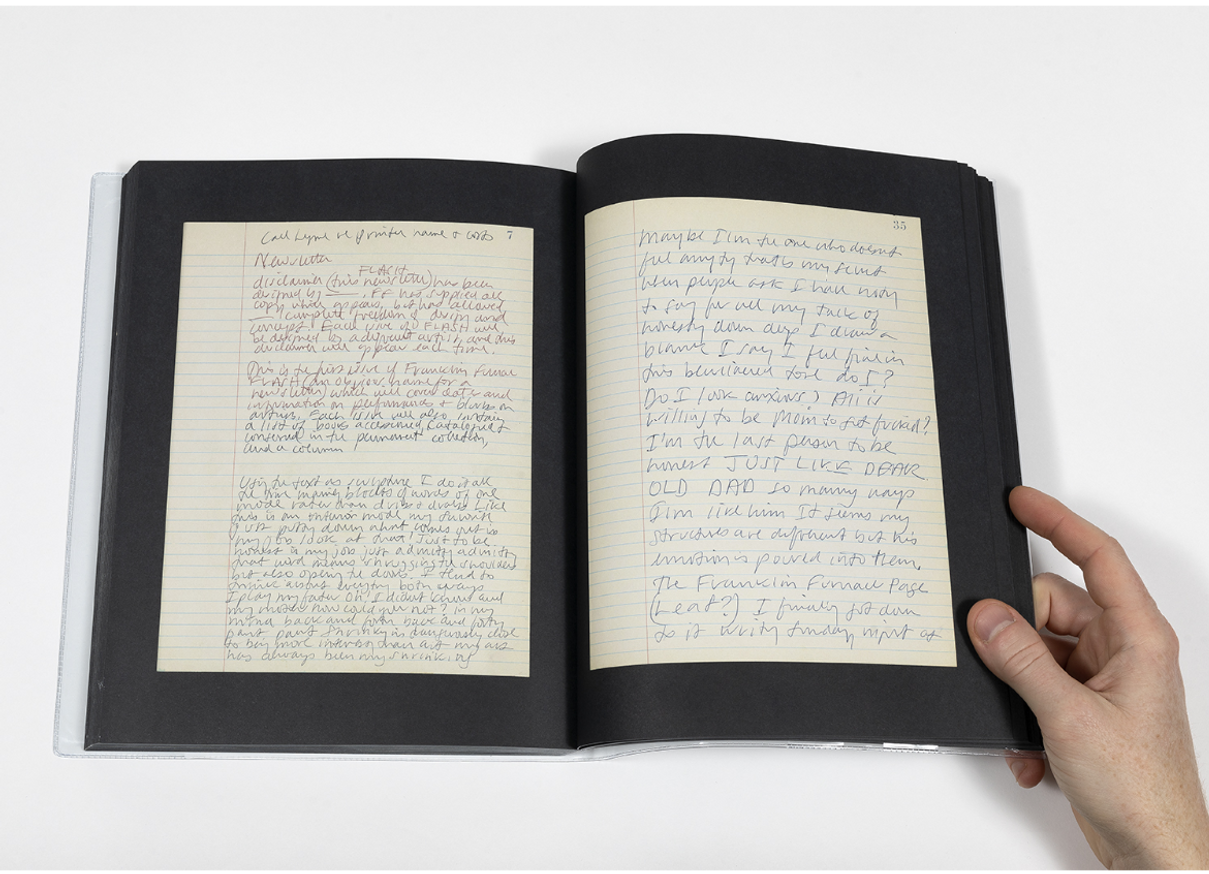 Call Lynn re printer name & costs 7
Newsletter
FLASH
disclaimer (this newsletter) has been
designed by ___. FF has supplied all
copy which appears, but has allowed
___ complete freedom of design and
concept. Each issue of FLASH will
be designed by a different artist, and this
disclaimer will appear each time.
This is the first issue of Franklin Furnace
FLASH (an obvious name for a
newsletter) which will cover dates and
information on performances + blurbs on
artists. Each issue will also contain
a list of books accessioned, cataloguet
conserved in the permanent collection,
and a column
Using the text as sculpture I do it all
the time making blocks of words of one
mode rather than dribs & drabs Like
this is an interior mode my favorite
just putting down what comes out is
my job look at that! Just to be
honest is my job just admitting admitting
that word means shrugging the shoulders
but also opening the doors. I tend to
think about everything both ways
I play my father Oh, I didn't know and
my mother how could you not? in my
mind back and forth back and forth
pant pant Shrinky is dangerously close
to being more interesting than art my art
has always been my shrinking
35
Maybe I'm the one who doesn't
feel angry that's my secret
when people ask I have nothing
to say for all my talk of
honesty down deep I draw a
blank I say I feel fine in
this bewildered tone do I?
Do I look anxious) All is
willing to be Mom to get fucked?
I'm the last person to be
honest JUST LIKE DEAR
OLD DAD so many ways
I'm like him It seems my
structures are different but his
emotion is poured into them.
The Franklin Furnace Page
(Leaf?) I finally got down
to it writing Sunday night of